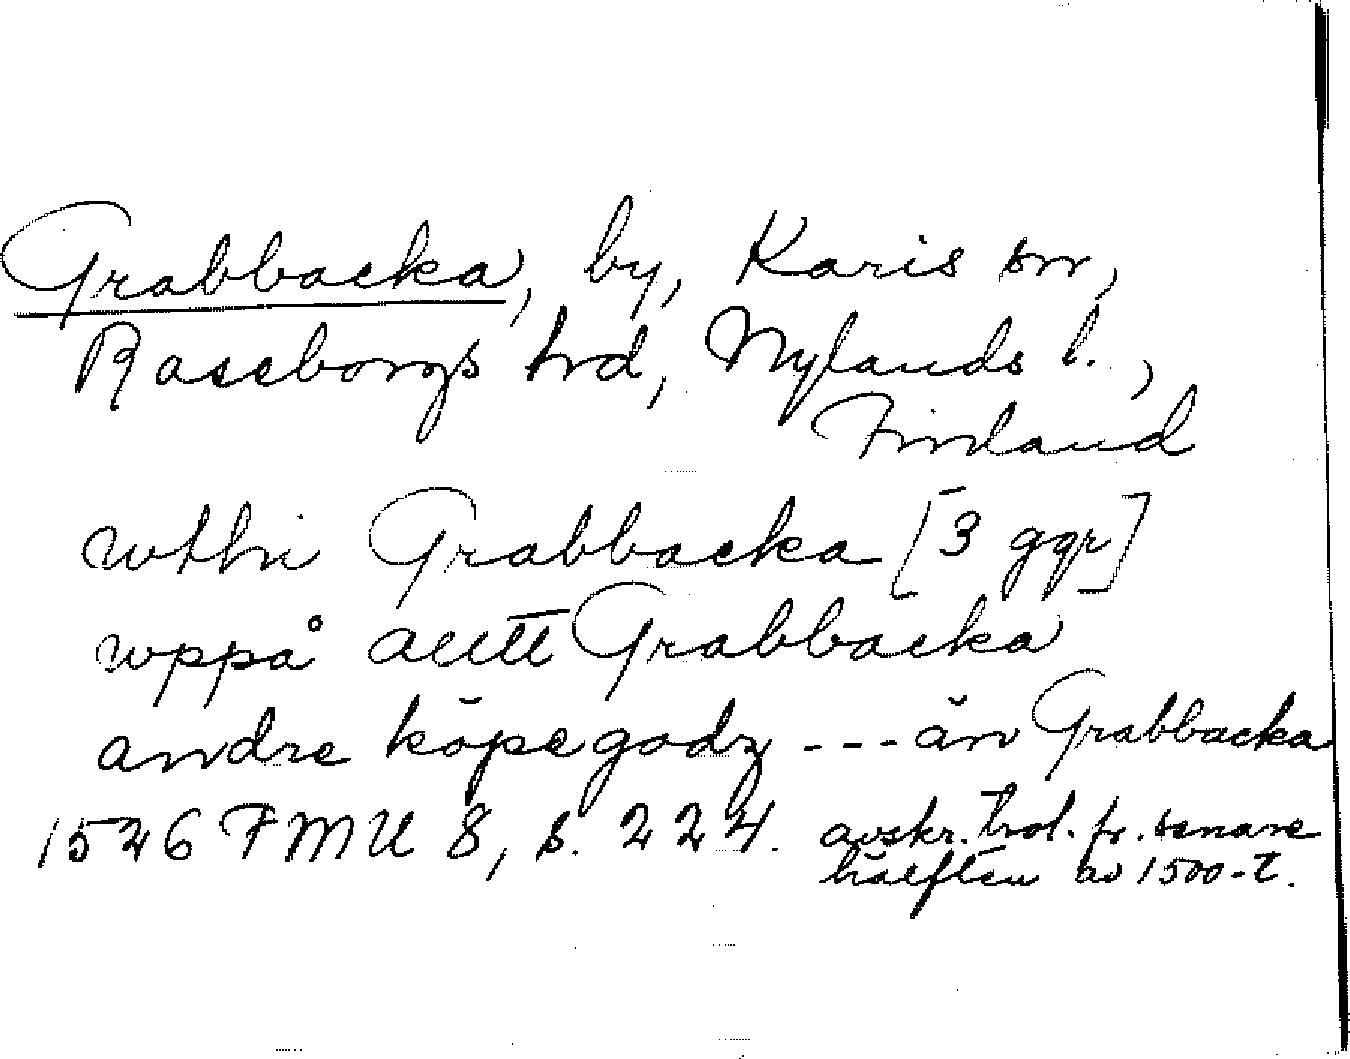 Grabbacka, by, Karis sn,
Raseborgs hrd, Nylands l.,
Finland
wthi Grabbacka [3 ggr]
wppå Grabbacka
andre köpegodz --- än Grabbacka
1526 FMU 8, s. 224. avskr. trol. fr. senare
hälften av 1500-t.